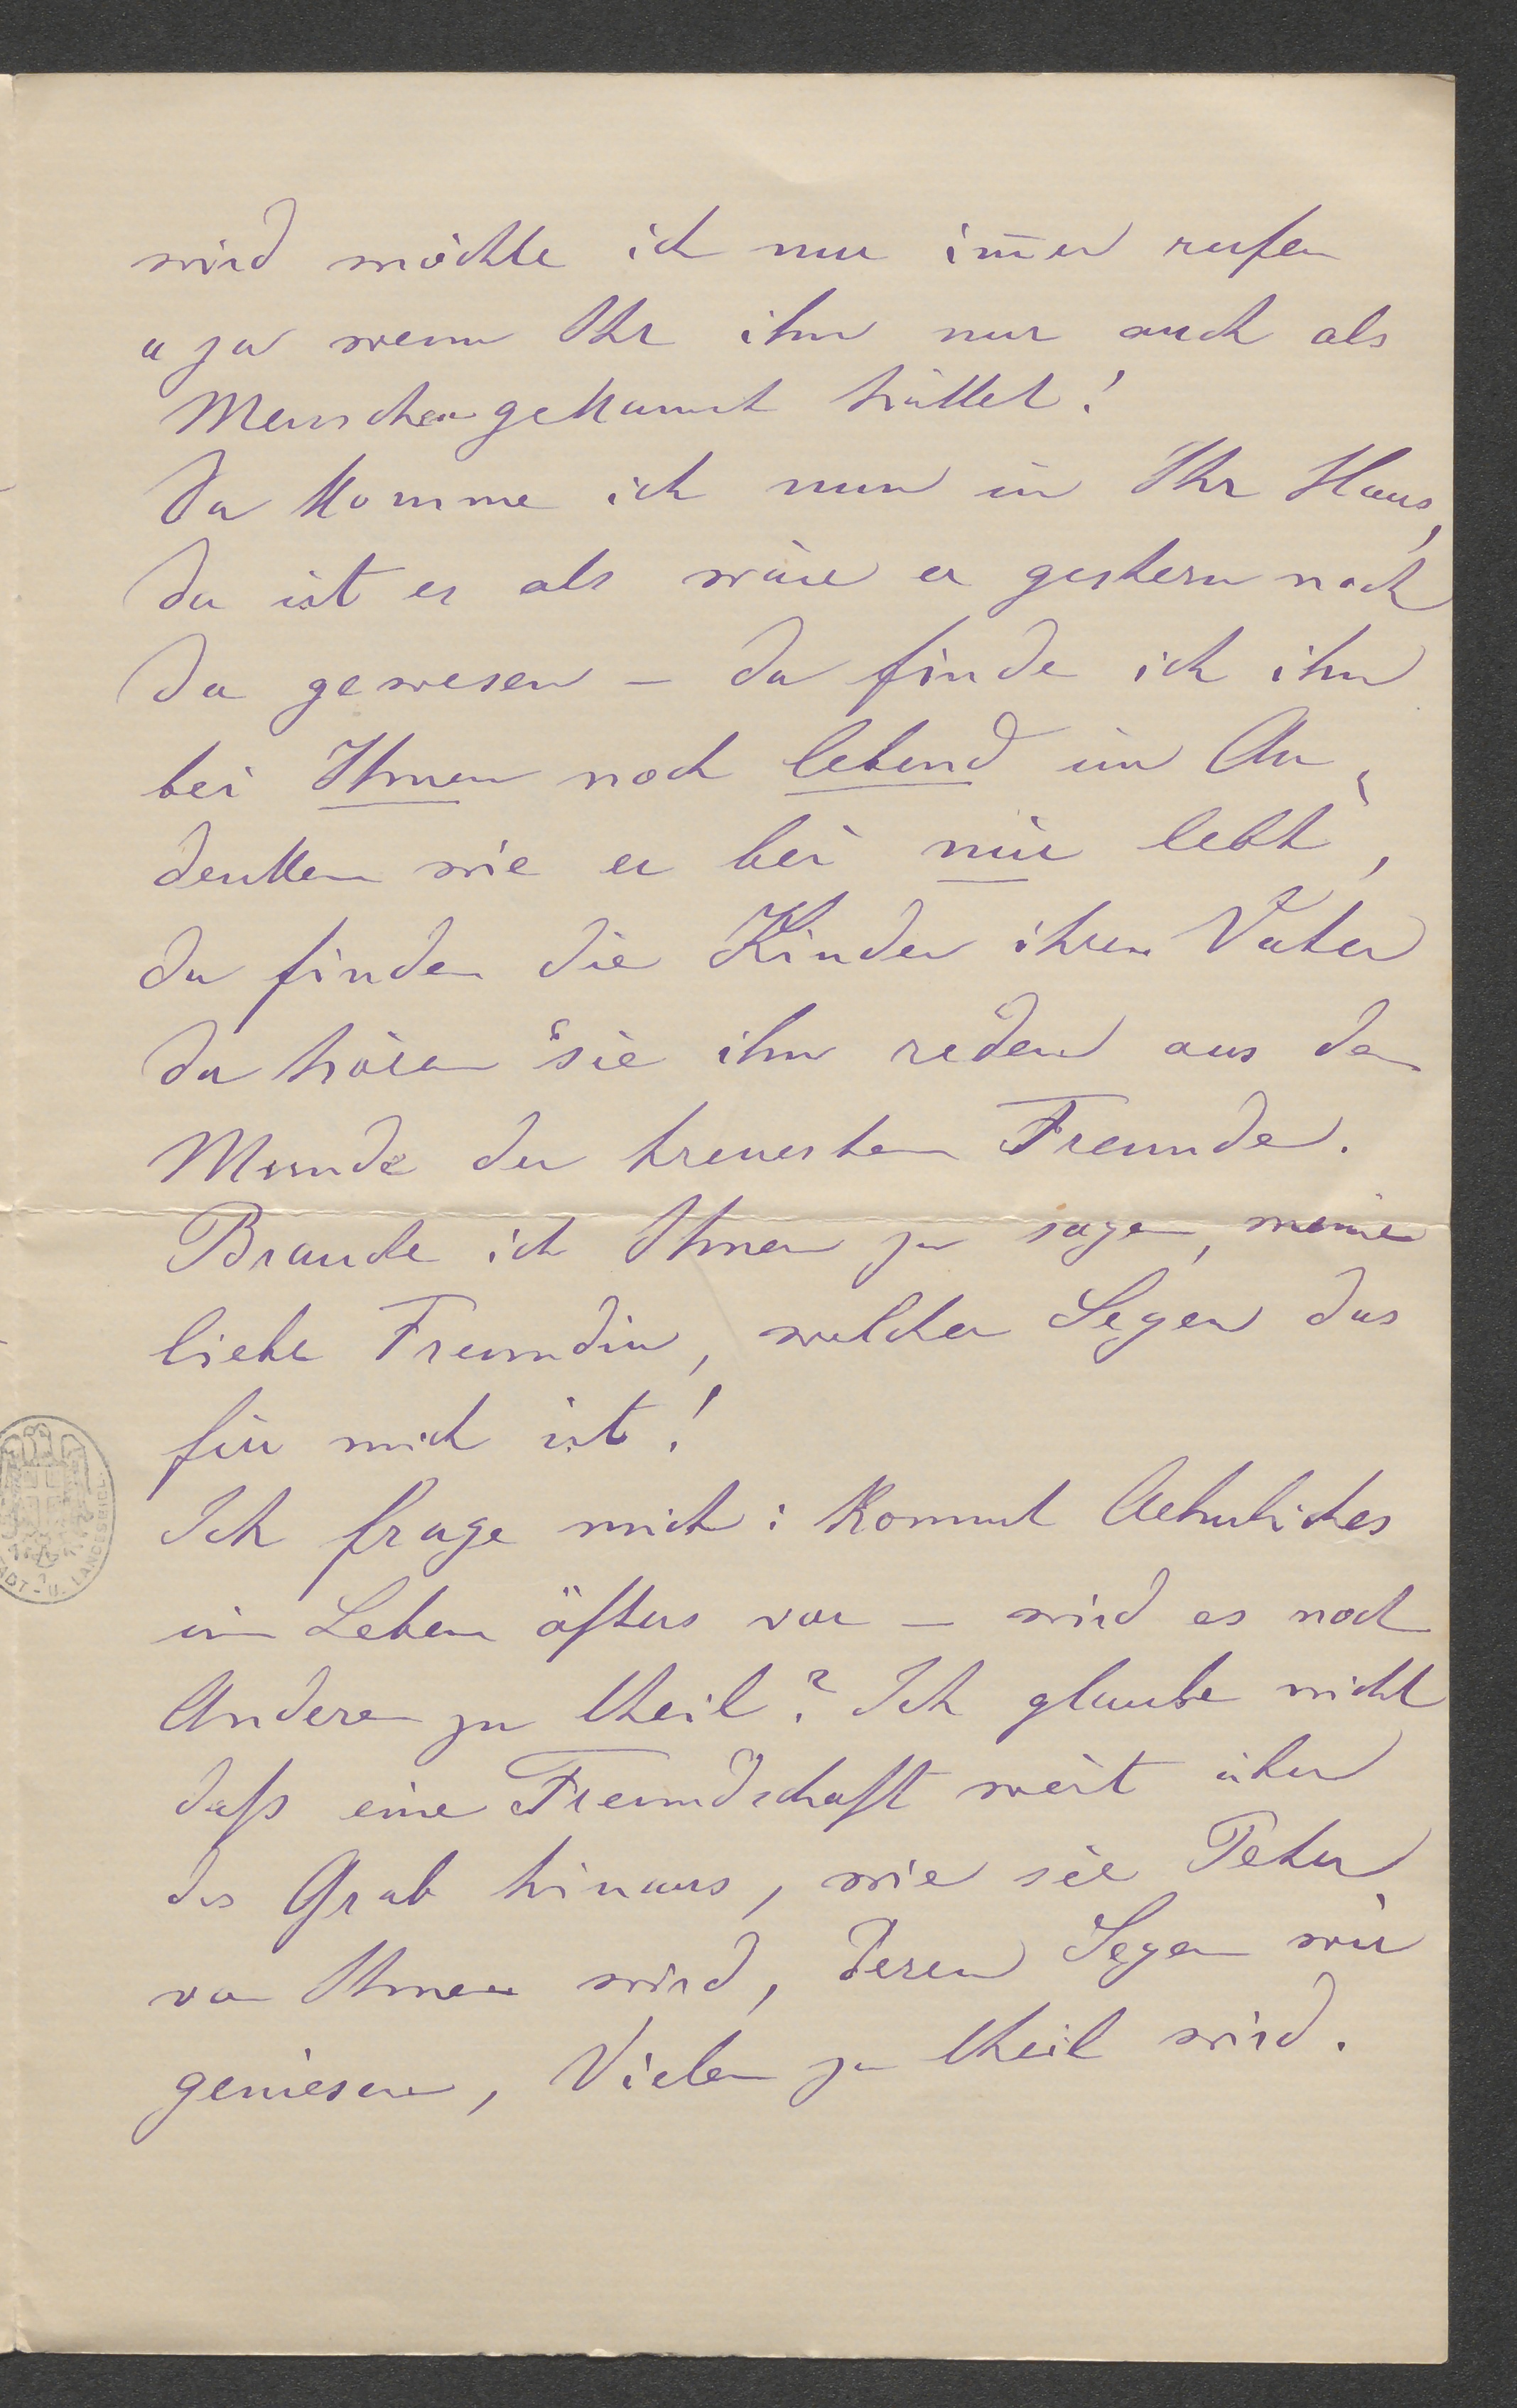 wird möchte ich nur im̄er rufen
"ja wenn Ihr ihn nur auch als
Menschen gekannt hättet!
Da komme ich nun in Ihr Haus,
da ist es als wäre er gestern noch
da gewesen – da finde ich ihn
bei Ihnen noch lebend im An-
denken wie er bei mir lebt,
da finden die Kinder ihren Vater
da hören sie ihn reden aus dem
Munde der treuesten Freunde.
Brauche ich Ihnen zu sagen, meine
liebe Freundin, welcher Segen das
für mich ist!
Ich frage mich: kommt Aehnliches
im Leben öfters vor – wird es noch
Anderen zu theil? Ich glaube nicht
daß eine Freundschaft weit über
das Grab hinaus, wie sie Peter
von Ihnen wird, deren Segen wir
geniesen, Vielen zu theil wird.
ADT-U. LANDESBIBL.